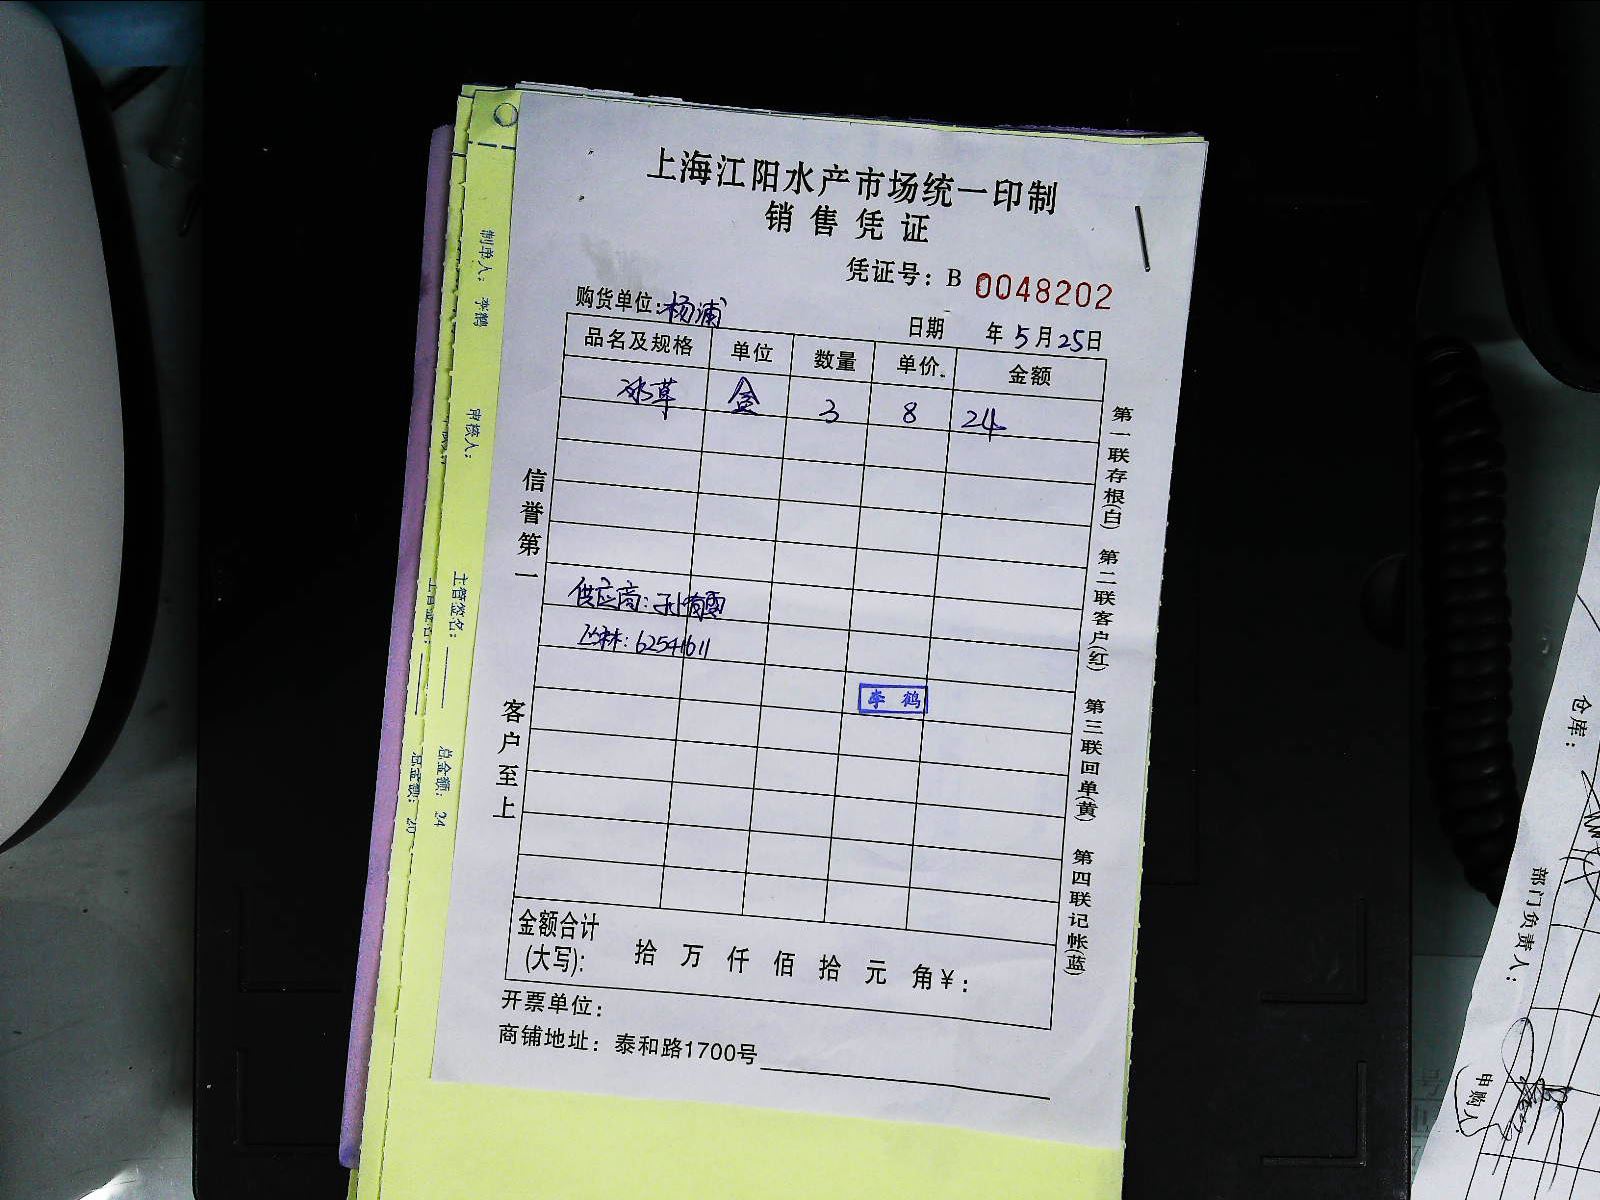 上海江阳水产市场统一印制
销售凭证
凭证号：B 0048202
购货单位：杨浦
日期 年 5 月 25 日
品名及规格 单位 数量 单价 金额
冰草 盒 3 8 24
供应商：孙
62541611
李鹤
信誉第一
客户至上
第一联存根(白) 第二联客户(红) 第三联回单(黄) 第四联记帐(蓝)
金额合计
(大写)： 拾 万 仟 佰 拾 元 角 ¥：
开票单位：
商铺地址：泰和路1700号
制单人：李鹤
审核人：
主管签名：
总金额：24
总金额：20
仓库：
部门负责人：
申购人：